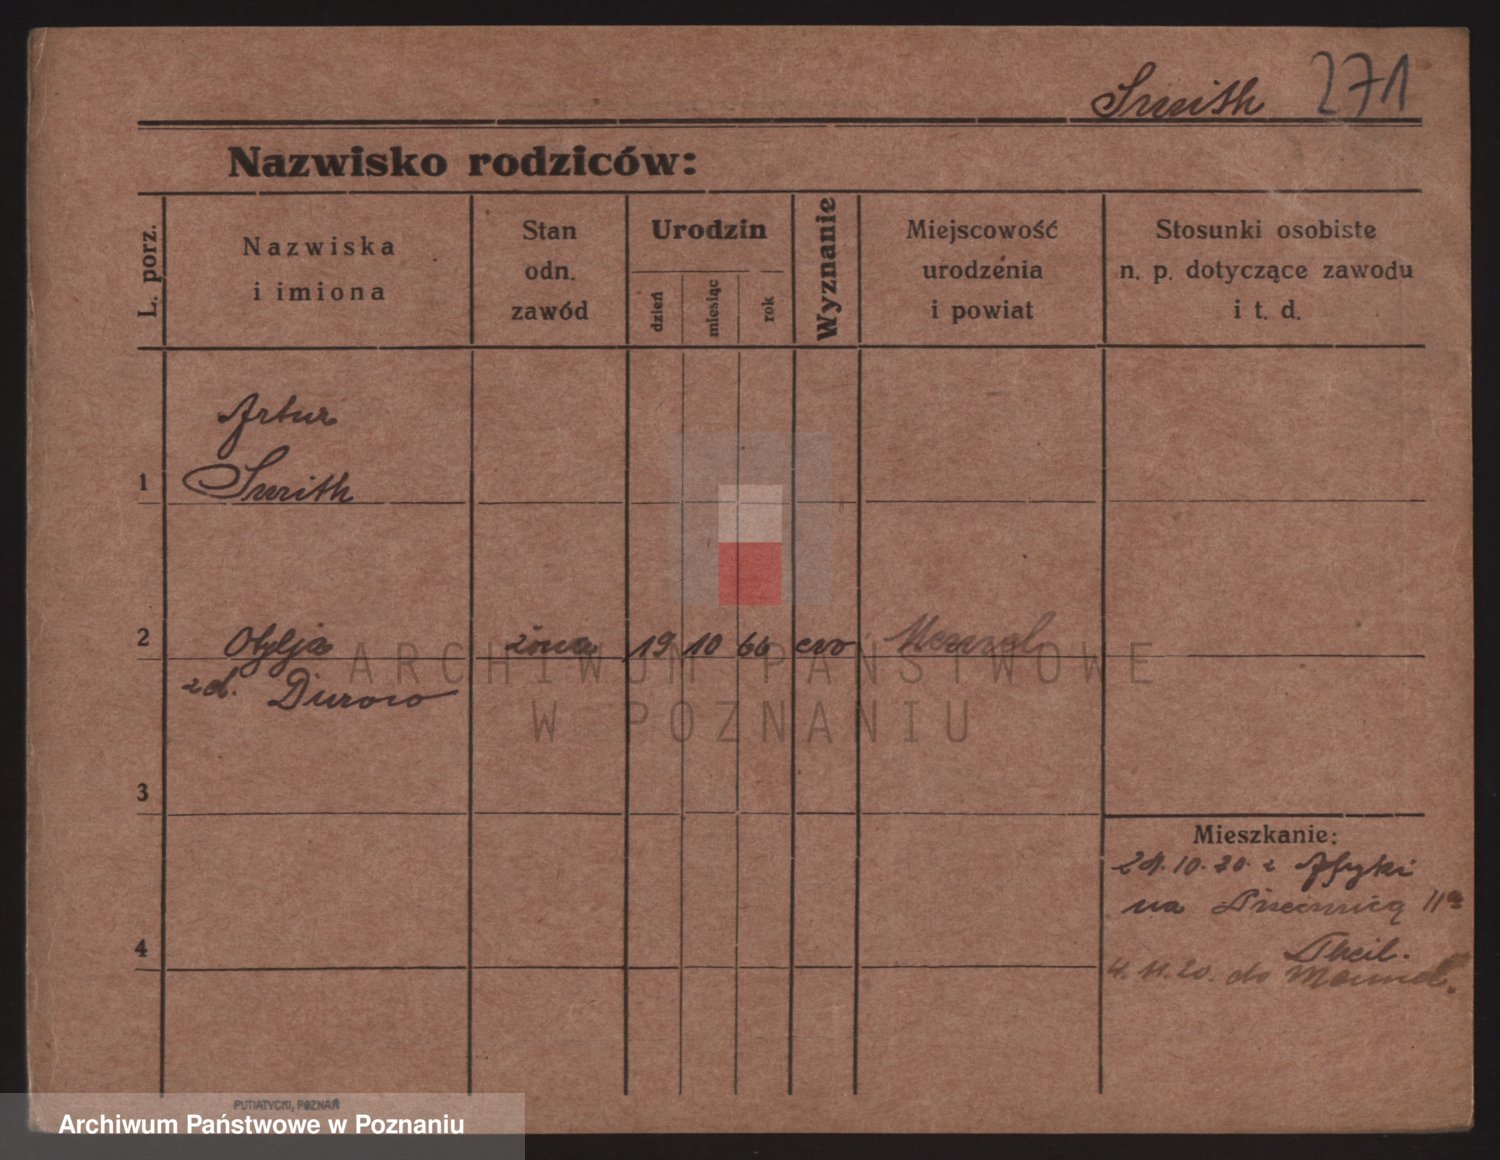 Smith 271
Nazwisko rodziców:
L. porz.
Nazwiska
i imiona
Stan
odn.
zawód
Urodzin
dzień
miesiąc
rok
Wyznanie
Miejscowość
urodzenia
i powiat
Stosunki osobiste
n. p. dotyczące zawodu
i t. d.
Artur
1 Smith
2 Otylja żona 19 10 66
zd. Durow
3
4
Mieszkanie:
24.10.20 z Afryki
na 11
4.11.20. do
ARCHIWUM PAŃSTWOWE
W POZNANIU
PUTIATYCKI, POZNAŃ
Archiwum Państwowe w Poznaniu